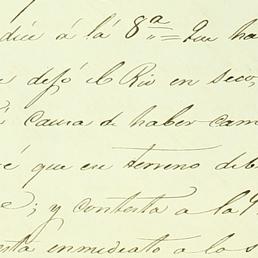 dice á la 8ª = Que ha
dejó el Rio en seco,
causa de haber cam
é que en terreno deb
e; y contesta a la 9
esta inmediato a los